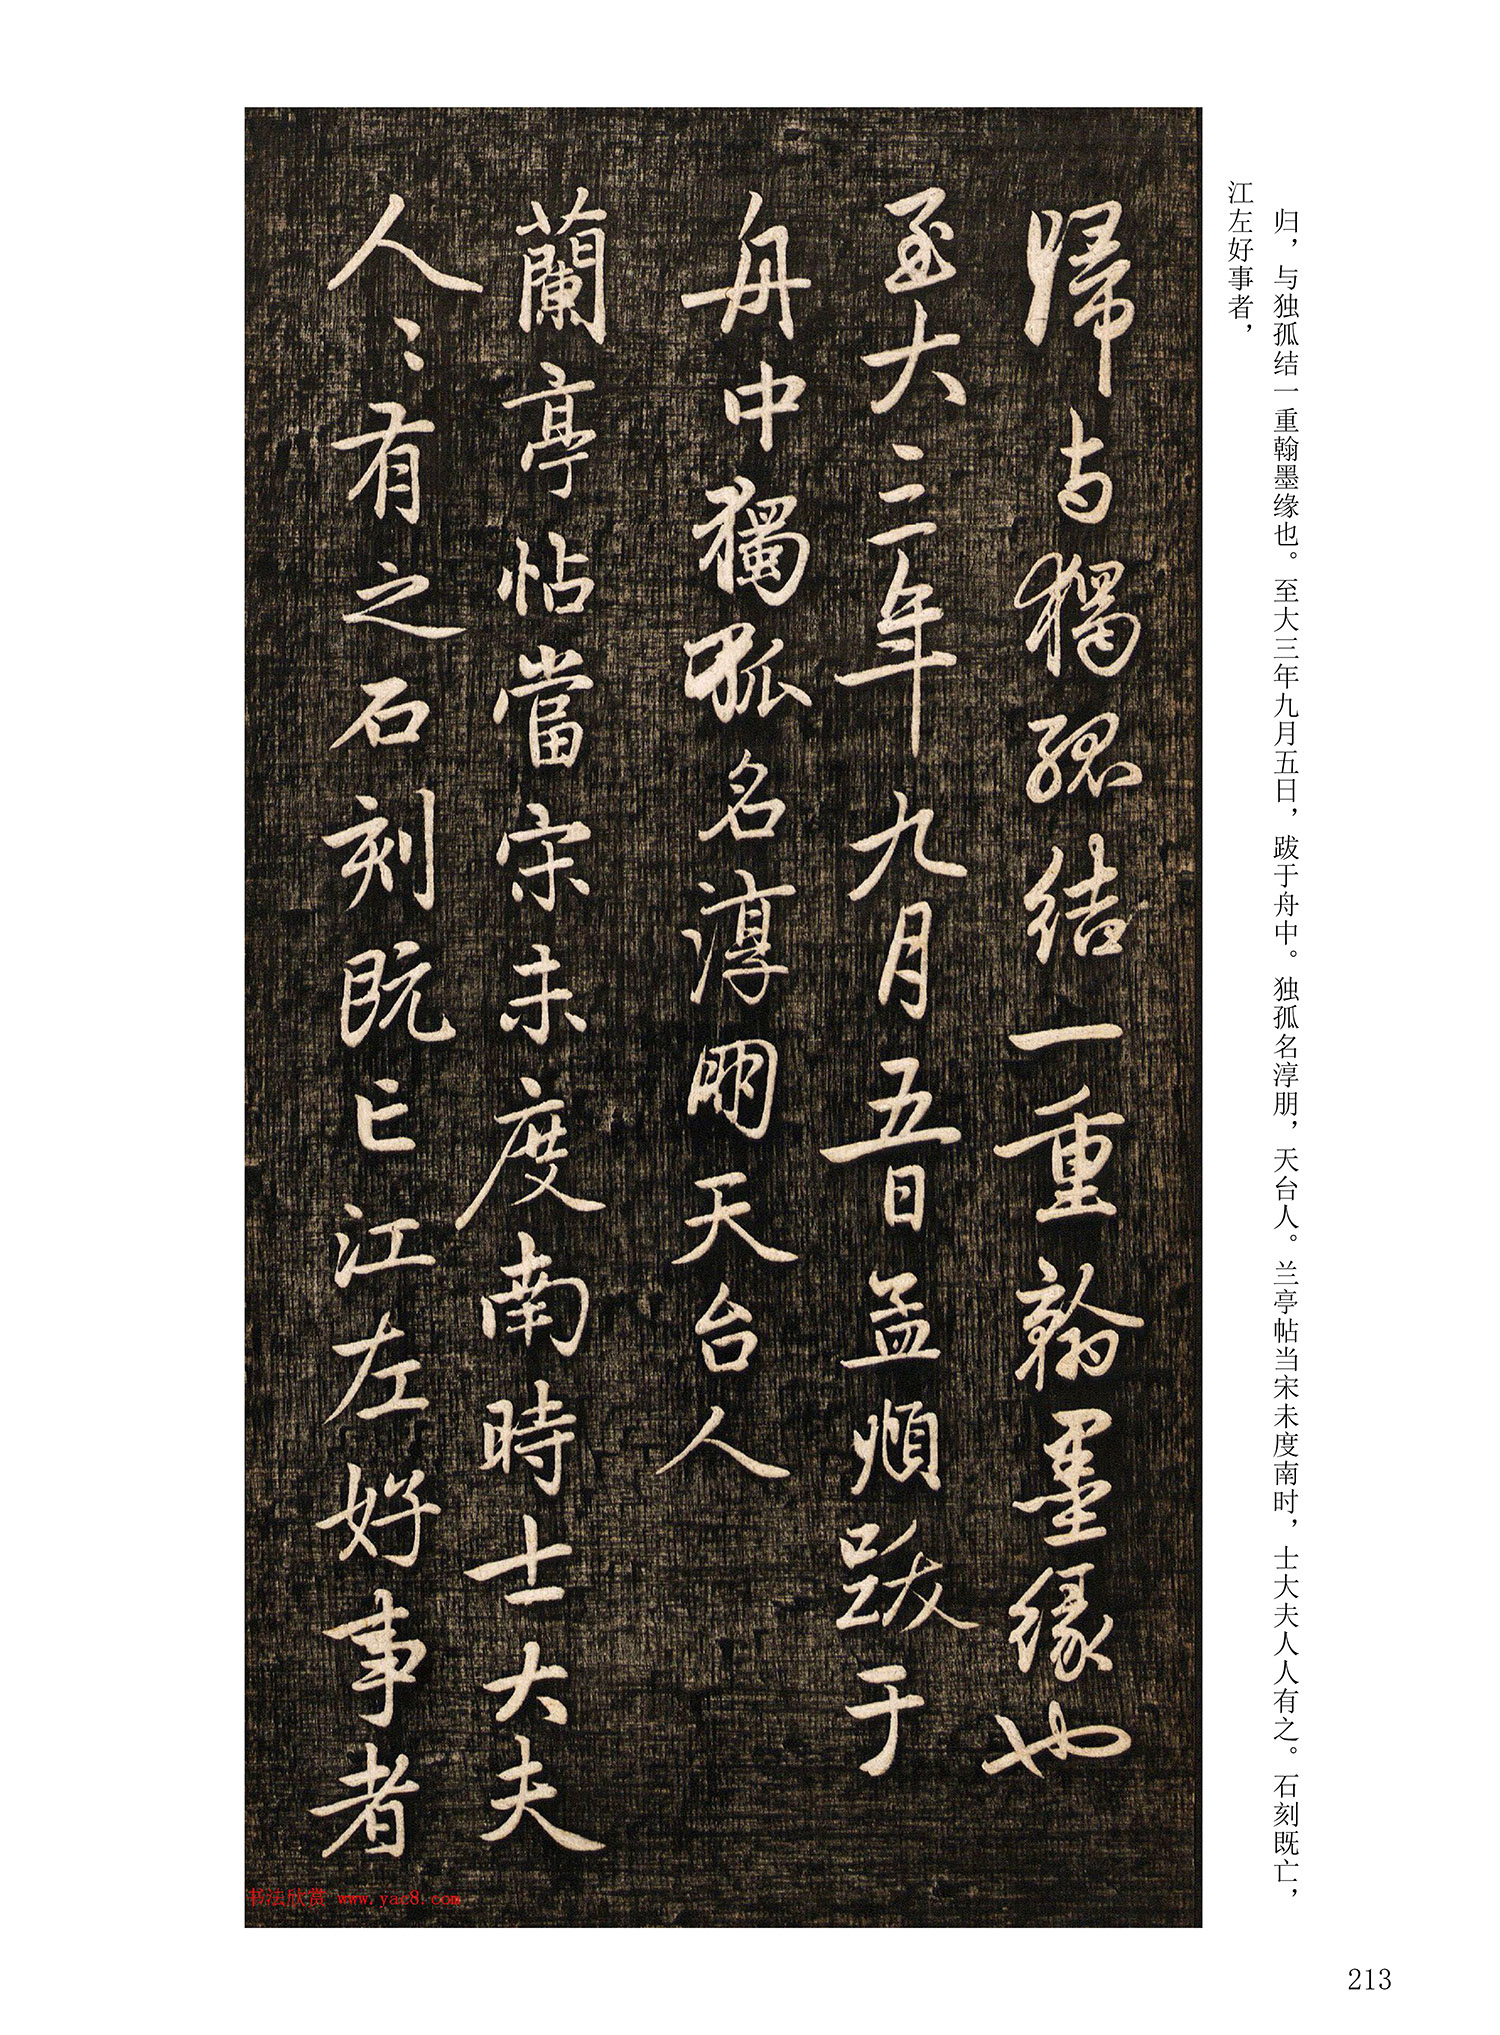 归，与独孤结一重翰墨缘也。至大三年九月五日，跋于舟中。独孤名淳朋，天台人。兰亭帖当宋未度南时，士大夫人人有之。石刻既亡，
江左好事者，
歸与獨孤結一重翰墨緣也
至大三年九月五日孟頫跋于
舟中獨孤名淳朋天台人
蘭亭帖當宋未度南時士大夫
人〻有之石刻既亡江左好事者
书法欣赏 www.yac8.com
213